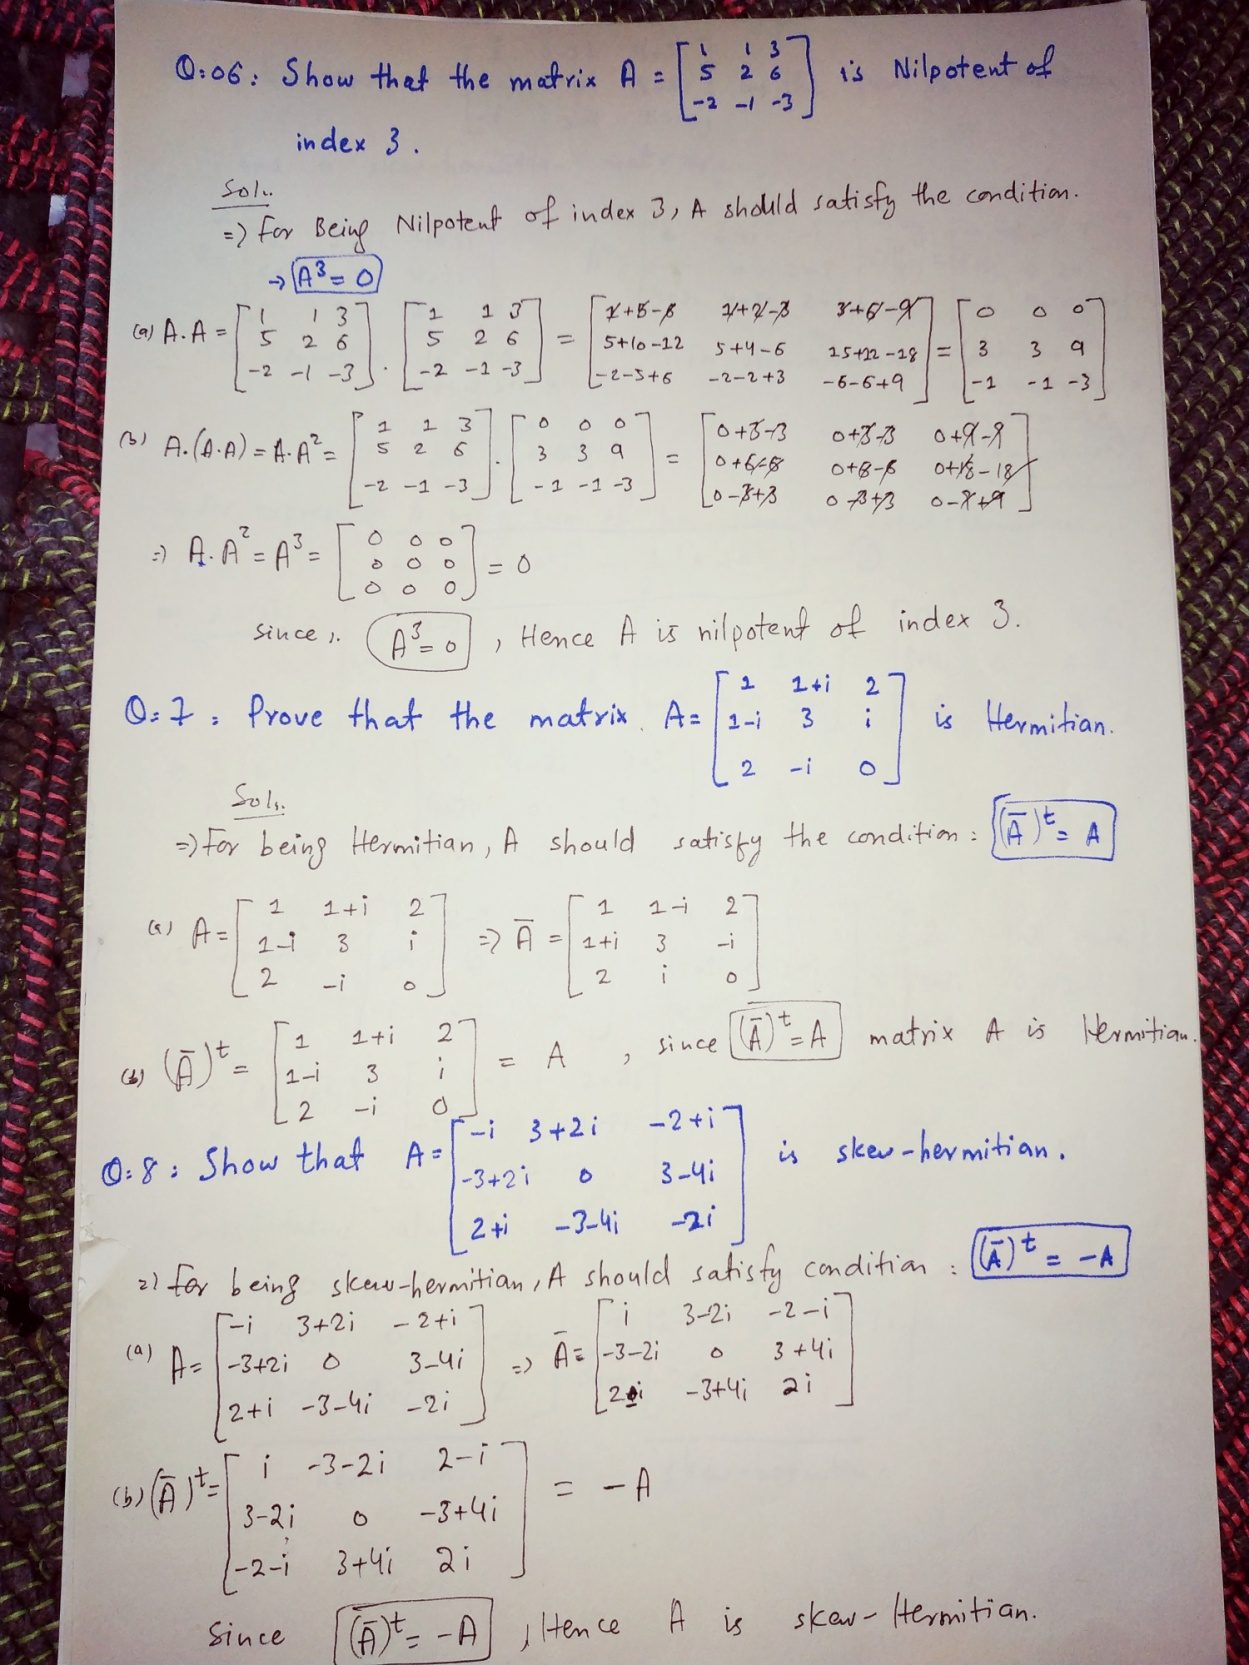 Q:06: Show that the matrix A = [1 1 3; 5 2 6; -2 -1 -3] is Nilpotent of
index 3.
Soln.
=> For Being Nilpotent of index 3, A should satisfy the condition.
→ A³ = 0
(a) A.A = [1 1 3; 5 2 6; -2 -1 -3] . [1 1 3; 5 2 6; -2 -1 -3] = [1+5-6 1+2-3 3+6-9; 5+10-12 5+4-6 15+12-18; -2-5+6 -2-2+3 -6-6+9] = [0 0 0; 3 3 9; -1 -1 -3]
(b) A.(A.A) = A.A² = [1 1 3; 5 2 6; -2 -1 -3] . [0 0 0; 3 3 9; -1 -1 -3] = [0+3-3 0+3-3 0+9-9; 0+6-6 0+6-6 0+18-18; 0-3+3 0-3+3 0-9+9]
=> A.A² = A³ = [0 0 0; 0 0 0; 0 0 0] = 0
since, A³ = 0, Hence A is nilpotent of index 3.
Q:7: Prove that the matrix A = [1 1+i 2; 1-i 3 i; 2 -i 0] is Hermitian.
Soln.
=> For being Hermitian, A should satisfy the condition: (Ā)ᵗ = A
(a) A = [1 1+i 2; 1-i 3 i; 2 -i 0] => Ā = [1 1-i 2; 1+i 3 -i; 2 i 0]
(b) (Ā)ᵗ = [1 1+i 2; 1-i 3 i; 2 -i 0] = A, since (Ā)ᵗ = A matrix A is Hermitian.
Q:8: Show that A = [-i 3+2i -2+i; -3+2i 0 3-4i; 2+i -3-4i -2i] is skew-hermitian.
=> for being skew-hermitian, A should satisfy condition: (Ā)ᵗ = -A
(a) A = [-i 3+2i -2+i; -3+2i 0 3-4i; 2+i -3-4i -2i] => Ā = [i 3-2i -2-i; -3-2i 0 3+4i; 2-i -3+4i 2i]
(b) (Ā)ᵗ = [i -3-2i 2-i; 3-2i 0 -3+4i; -2-i 3+4i 2i] = -A
Since (Ā)ᵗ = -A, Hence A is skew-Hermitian.